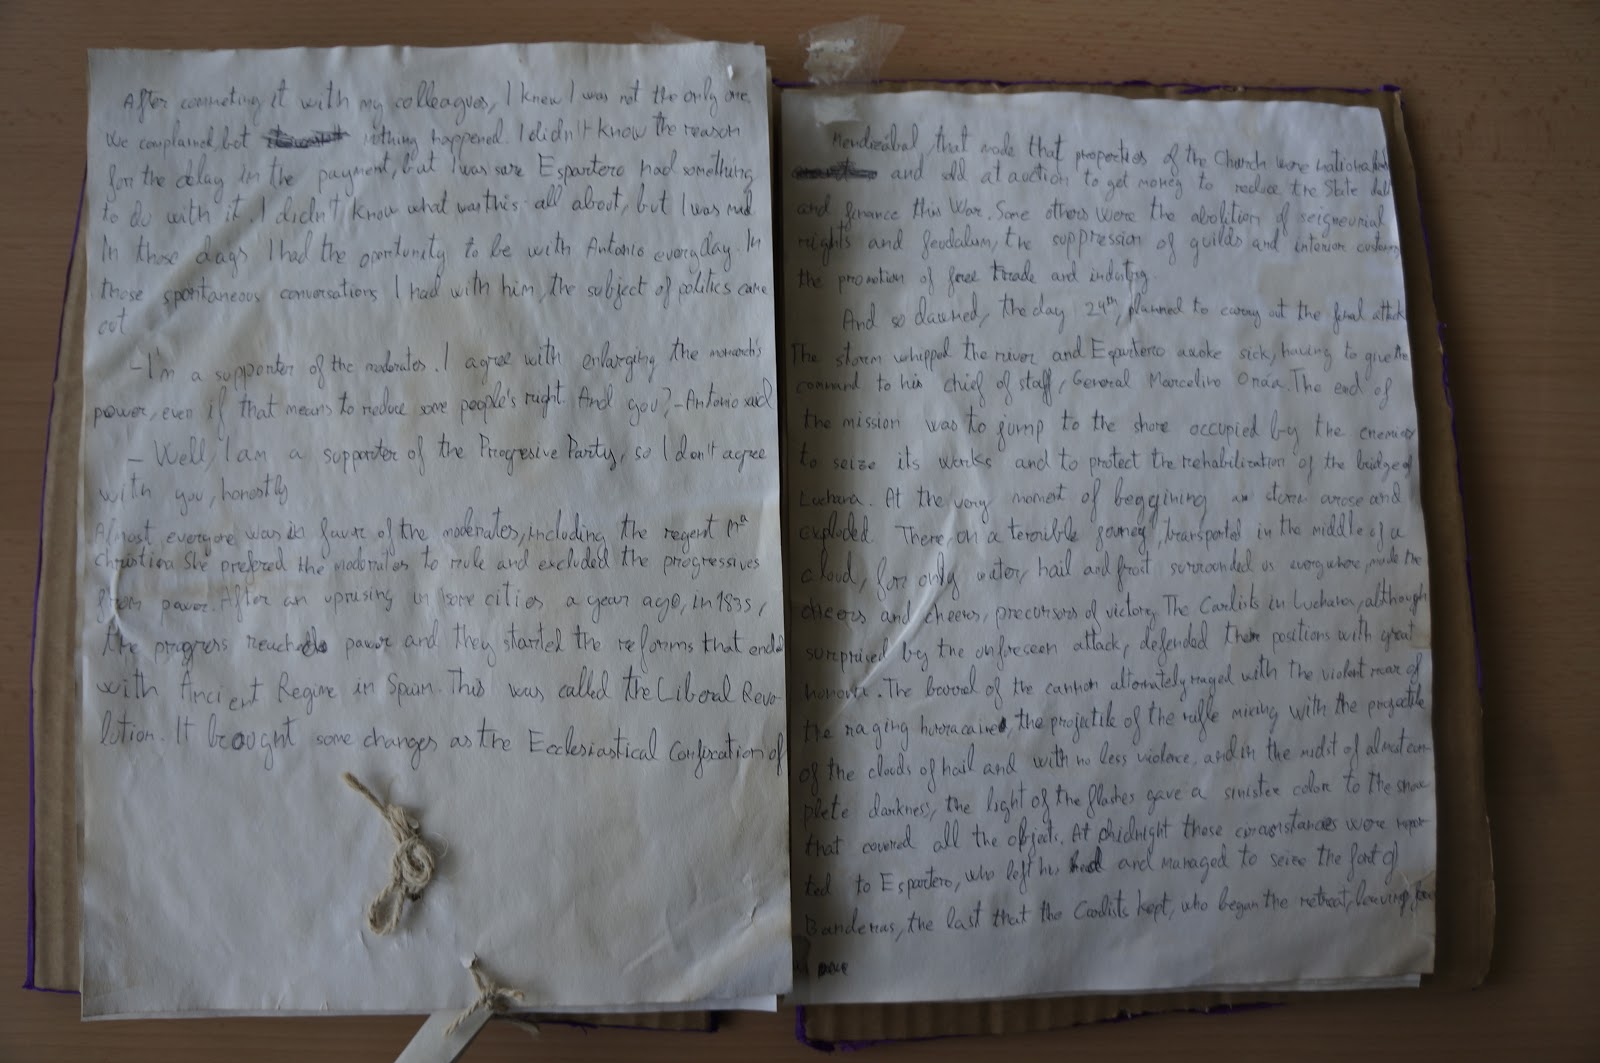 After commeting it with my colleagues, I knew I was not the only one.
We complained, but nothing happened. I didn't know the reason
for the delay in the payment, but I was sure Espartero had something
to do with it. I didn't know what was this all about, but I was mad.
In those days I had the oportunity to be with Antonio everyday. In
those spontaneous conversations I had with him, the subject of politics came
out
-I'm a supporter of the moderates. I agree with enlarging the monarch's
power, even if that means to reduce some people's right. And you? -Antonio said
- Well, I am a supporter of the Progresive Party, so I don't agree
with you, honestly
Almost everyone was in favor of the moderates, including the regent Mª
Christina. She prefered the moderates to rule and excluded the progressives
from power. After an uprising in some cities a year ago, in 1835,
the progress reached power and they started the reforms that ended
with Ancient Regime in Spain. This was called the Liberal Revo-
lution. It brought some changes as the Ecclesiastical Confiscation of
Mendizabal, that made that properties of the Church were
and sold at auction to get money to reduce the State
and finance this War. Some others were the abolition of seigneurial
rights and feudalism, the suppression of guilds and interior customs
the promotion of free trade and industry.
And so dawned, the day 24th, planned to carry out the final attack
The storm whipped the river and Espartero awoke sick, having to give the
command to his chief of staff, General Marcelino Oráa. The end of
the mission was to jump to the shore occupied by the enemies
to seize its works and to protect the rehabilitation of the bridge of
Luchana. At the very moment of beggining a storm arose and
exploded. There, on a terrible journey, transported in the middle of a
cloud, for only water, hail and frost surrounded us everywhere, made the
cheers and cheers, precursors of victory. The Carlists in Luchana, although
surprised by the unforeseen attack, defended their positions with great
honour. The barrel of the cannon alternately raged with the violent roar of
the raging hurracaine, the projectile of the rifle mixing with the projectile
of the clouds of hail and with no less violence, and in the midst of almost com-
plete darkness, the light of the flashes gave a sinister color to the snow
that covered all the objects. At midnight these circumstances were repor-
ted to Espartero, who left his bed and managed to seize the fort of
Banderas, the last that the Carlists kept, who began the retreat, leaving